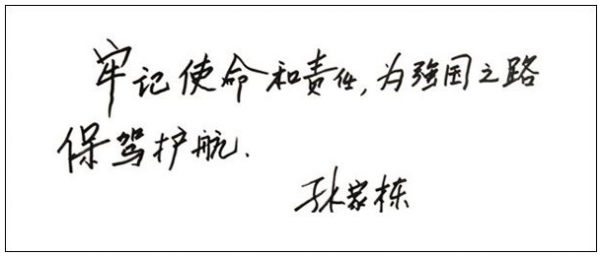 牢记使命和责任,为强国之路
保驾护航.
孙家栋